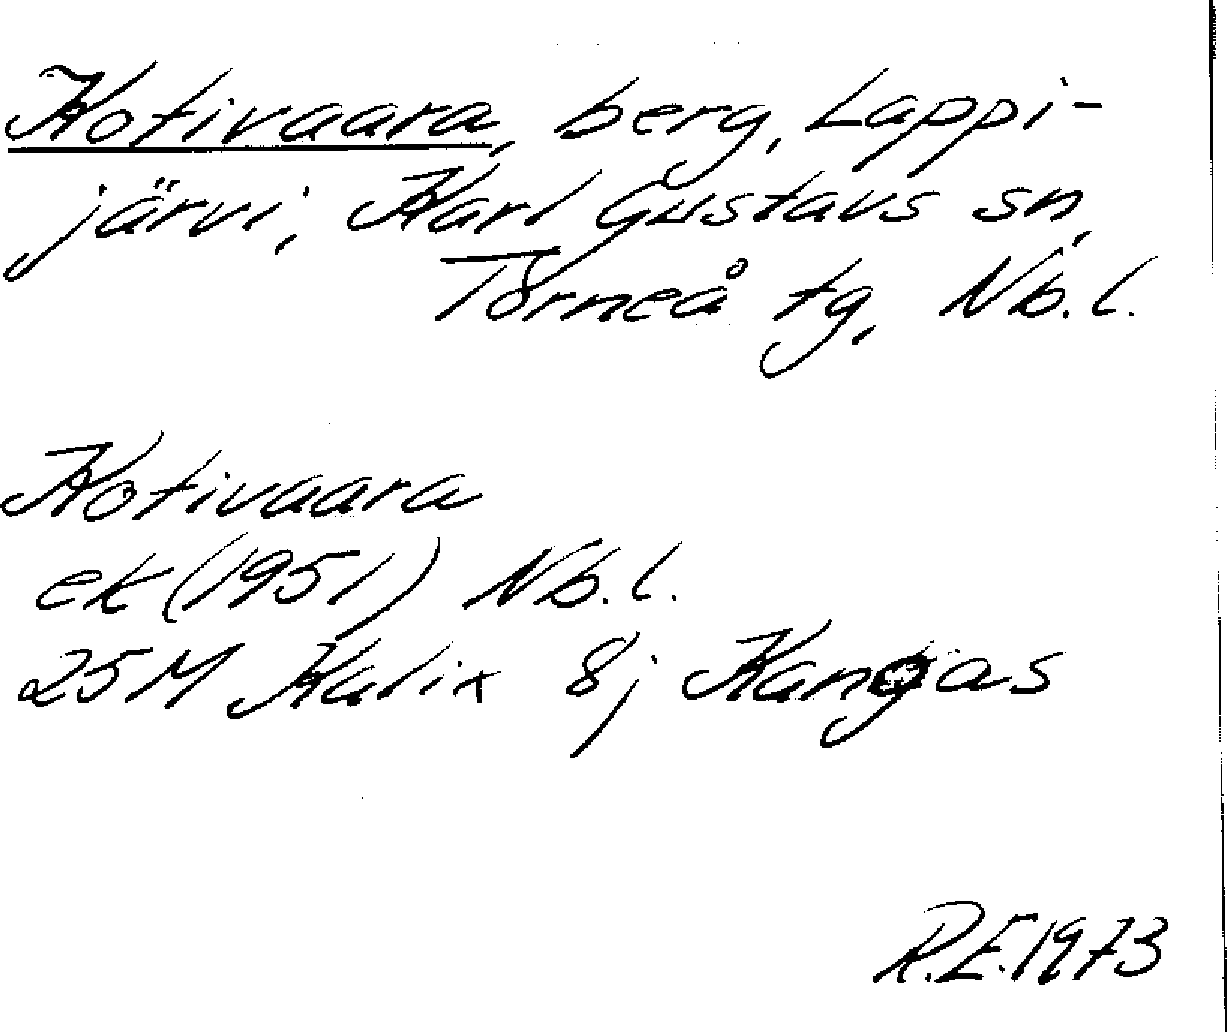 Kotivaara, berg, Lappi-
järvi, Karl Gustavs sn,
Torneå tg, Nb.l.
Kotivaara
ek (1951) Nb.l.
25M Kalix 8j Kangas
R.E. 1973